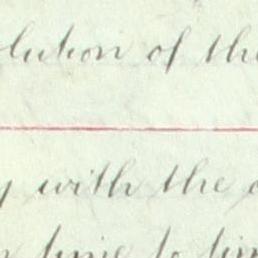 lution of the
y with the
time to tim